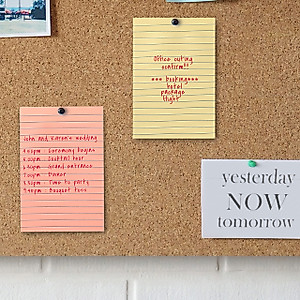 Office outing
confirm!!
*** booking***
hotel
package
flight
John and Karen's wedding
4:00pm - Ceremony begins
5:00pm - Cocktail hour
6:30pm - Grand entrance
7:00pm - Dinner
8:30pm - Time to party
9:00pm - Bouquet toss
yesterday
NOW
tomorrow